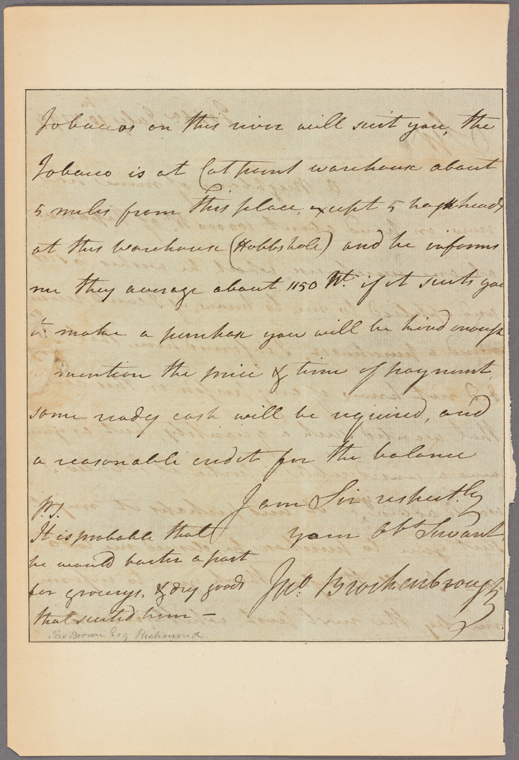 Tobaccos on this river will suit you, the
Tobacco is at Catpoint warehouse about
5 miles from this place, except 5 hogsheads
at this warehouse (Hobbshole) and he informs
me they average about 1150 Wt. if it suits you
to make a purchase you will be kind enough
mention the price & time of payment
some ready cash will be required, and
a reasonable credit for the balance
I am Sir respectly
your obt Servant
Jno. Brockenbrough
P.S.
It is probable that
he would barter a part
for grocerys, & dry goods
that suited him —
Jas Brown Esq Richmond